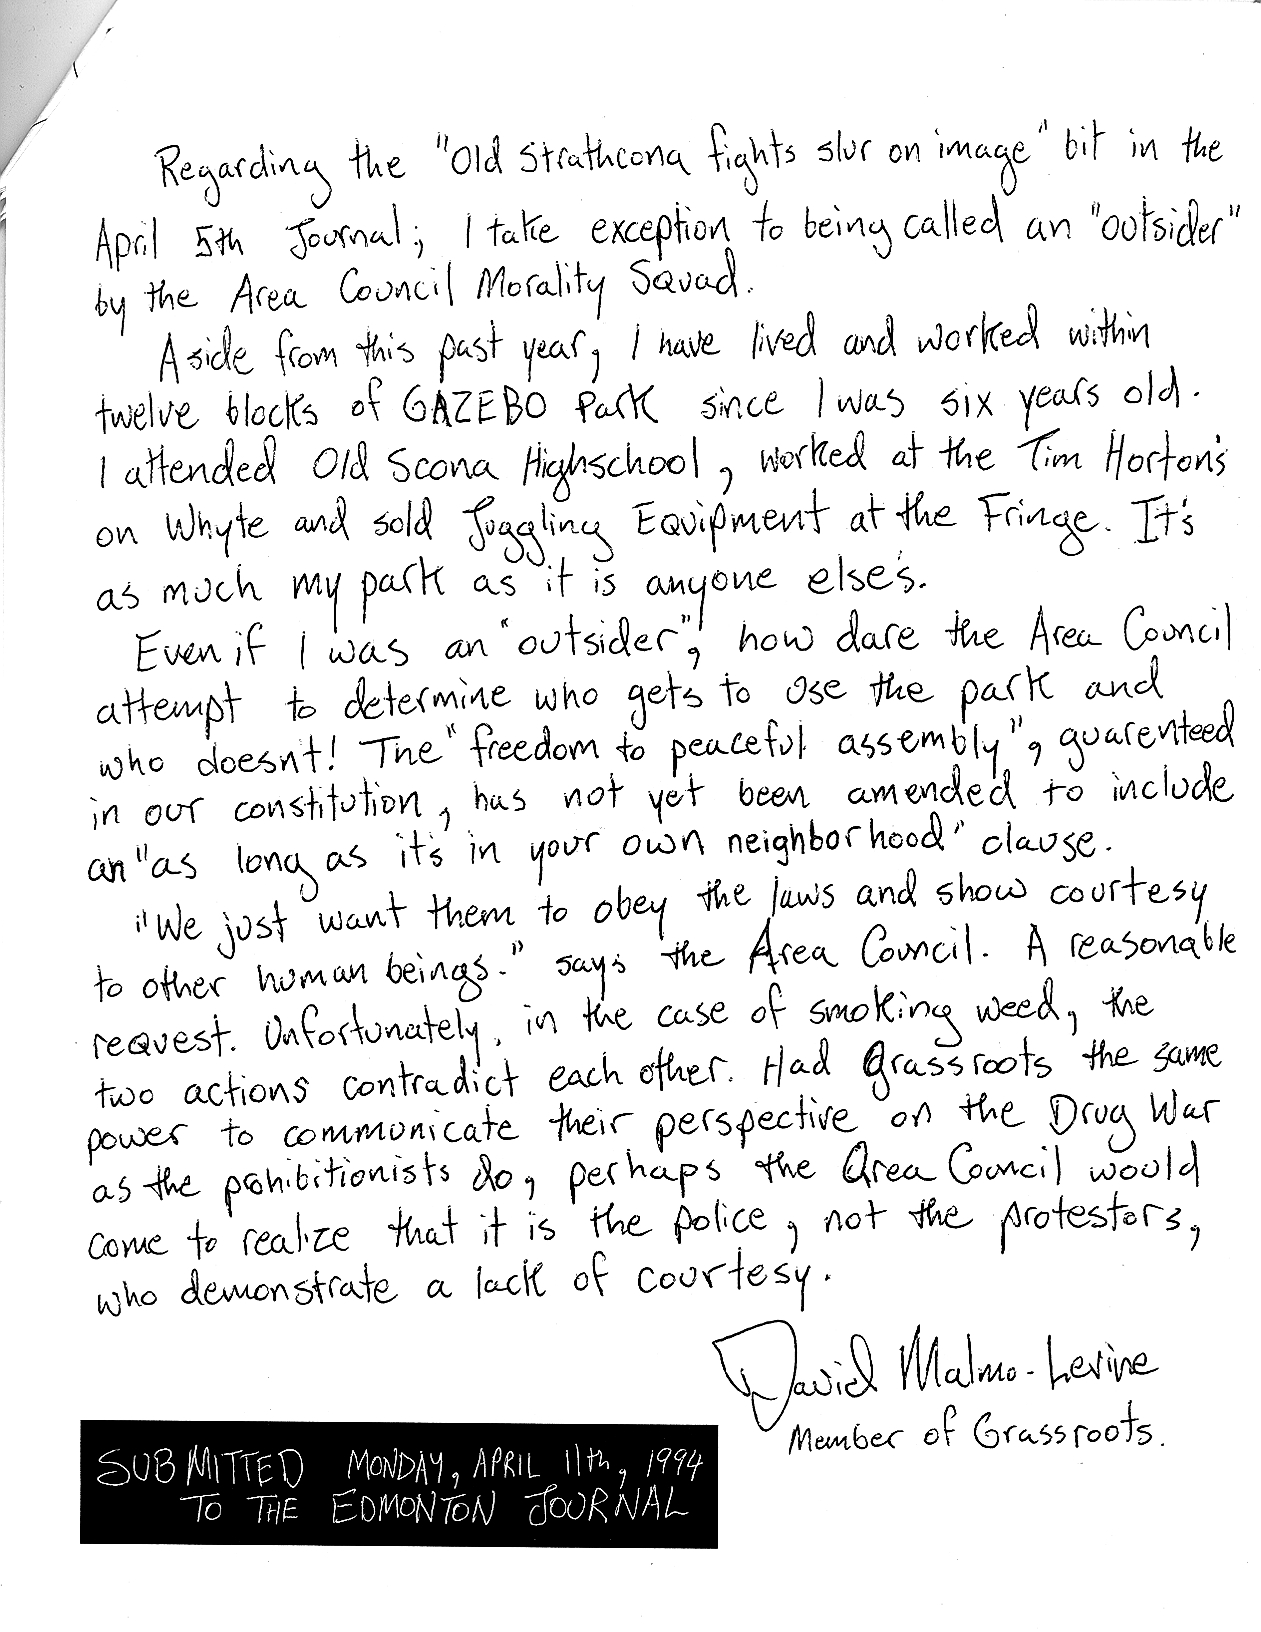 Regarding the "Old Strathcona fights slur on image" bit in the
April 5th Journal; I take exception to being called an "outsider"
by the Area Council Morality Squad.
Aside from this past year, I have lived and worked within
twelve blocks of GAZEBO Park since I was six years old.
I attended Old Scona Highschool, worked at the Tim Horton's
on Whyte and sold Juggling Equipment at the Fringe. It's
as much my park as it is anyone else's.
Even if I was an "outsider", how dare the Area Council
attempt to determine who gets to use the park and
who doesn't! The "freedom to peaceful assembly", guarenteed
in our constitution, has not yet been amended to include
an "as long as it's in your own neighborhood" clause.
"We just want them to obey the laws and show courtesy
to other human beings." says the Area Council. A reasonable
request. Unfortunately, in the case of smoking weed, the
two actions contradict each other. Had Grassroots the same
power to communicate their perspective on the Drug War
as the prohibitionists do, perhaps the Area Council would
come to realize that it is the police, not the protestors,
who demonstrate a lack of courtesy.
David Malmo-Levine
Member of Grassroots.
SUBMITTED MONDAY, APRIL 11th, 1994
TO THE EDMONTON JOURNAL